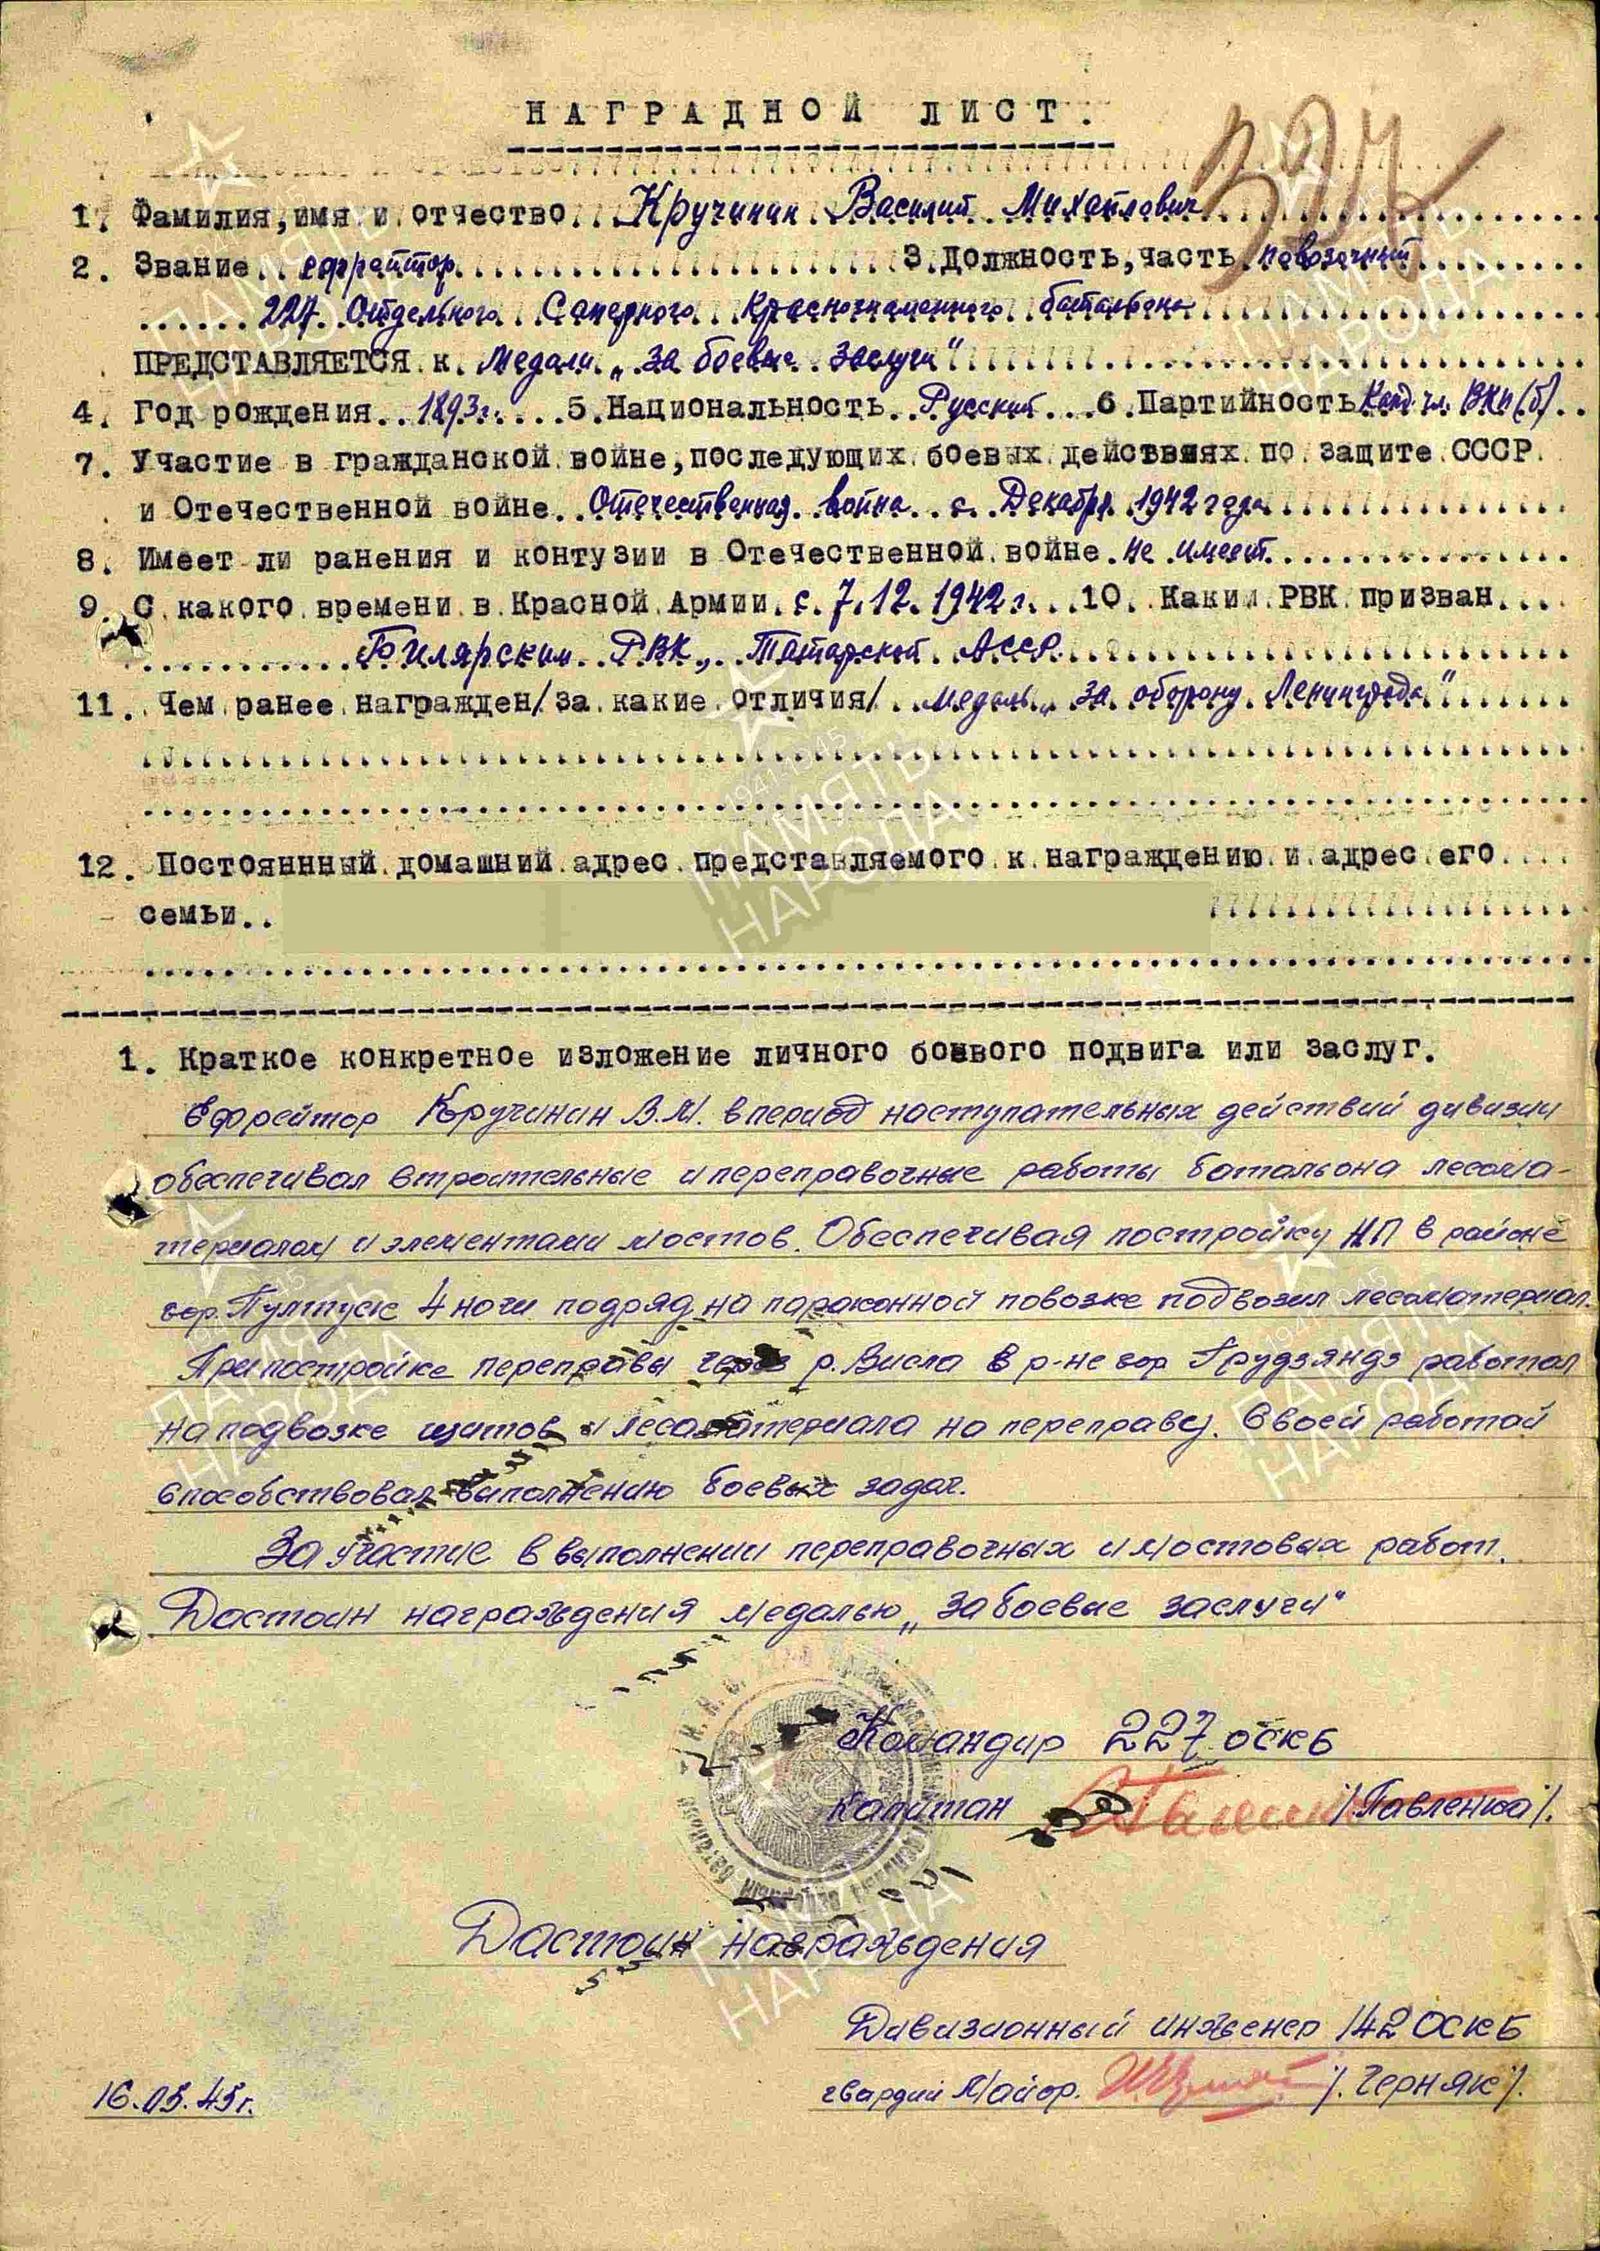 НАГРАДНОЙ ЛИСТ.
1. Фамилия, имя и отчество Кручинин Василий Михайлович
2. Звание ефрейтор 3. Должность, часть повозочный
227 Отдельного Саперного Краснознаменного батальона
ПРЕДСТАВЛЯЕТСЯ к медали „За боевые заслуги"
4. Год рождения 1893 г. 5. Национальность Русский 6. Партийность Канд. чл. ВКП(б)
7. Участие в гражданской войне, последующих боевых действиях по защите СССР
и Отечественной войне Отечественная война с Декабря 1942 года
8. Имеет ли ранения и контузии в Отечественной войне не имеет
9. С какого времени в Красной Армии с 7.12.1942 г. 10. Каким РВК призван
Билярским РВК, Татарской АССР
11. Чем ранее награжден/за какие отличия/ медаль „За оборону Ленинграда"
12. Постояннный домашний адрес представляемого к награждению и адрес его
семьи
1. Краткое конкретное изложение личного боевого подвига или заслуг.
Ефрейтор Кручинин В.М. в период наступательных действий дивизии
обеспечивал строительные и переправочные работы батальона лесома-
териалом и элементами мостов. Обеспечивая постройку НП в районе
гор. Пултуск 4 ночи подряд на пароконной повозке подвозил лесоматериал.
При постройке переправы через р. Висла в р-не гор Грудзяндз работал
на подвозке щитов и лесоматериала на переправу. Своей работой
способствовал выполнению боевых задач.
За участие в выполнении переправочных и мостовых работ.
Достоин награждения медалью „За боевые заслуги"
Командир 227 ОСКБ
капитан /Павленко/.
Достоин награждения
Дивизионный инженер 142 ОСКБ
гвардии майор. /Черняк/.
16.05.45г.
ПАМЯТЬ НАРОДА
1941-1945